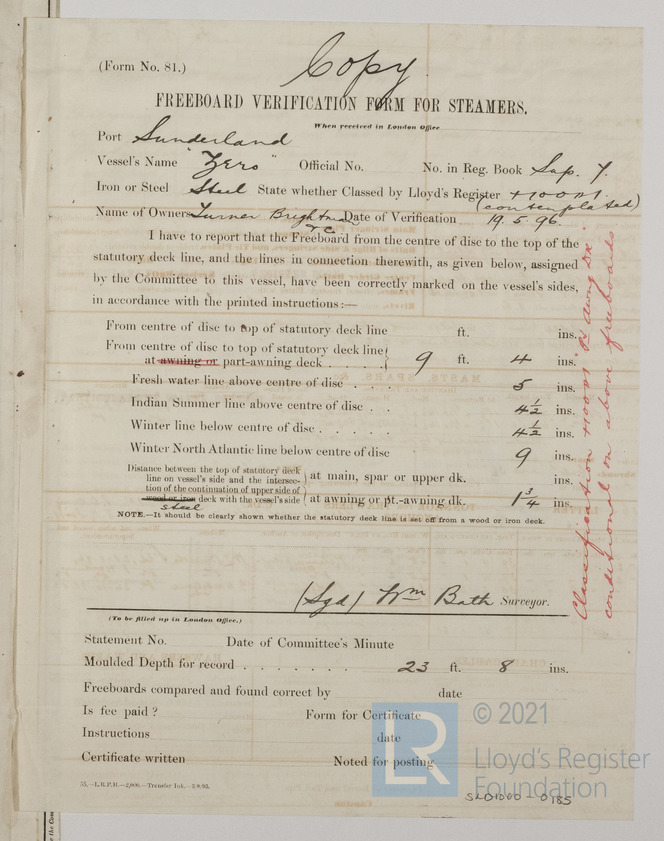 Copy
(Form No. 81.)
FREEBOARD VERIFICATION FORM FOR STEAMERS.
When received in London Office
Port Sunderland
Vessel's Name "Zero" Official No. No. in Reg. Book Sup. 7.
Iron or Steel Steel State whether Classed by Lloyd's Register +100A1.
(contemplated)
Name of Owners Turner Brightman Date of Verification 19.5.96.
&c
I have to report that the Freeboard from the centre of disc to the top of the
statutory deck line, and the lines in connection therewith, as given below, assigned
by the Committee to this vessel, have been correctly marked on the vessel's sides,
in accordance with the printed instructions:—
From centre of disc to top of statutory deck line ft. ins.
From centre of disc to top of statutory deck line
at awning or part-awning deck . . . . 9 ft. 4 ins.
Fresh water line above centre of disc . . . 5 ins.
Indian Summer line above centre of disc . . 4½ ins.
Winter line below centre of disc . . . . . 4½ ins.
Winter North Atlantic line below centre of disc 9 ins.
Distance between the top of statutory deck
line on vessel's side and the intersec- at main, spar or upper dk. ins.
tion of the continuation of upper side of
wood or iron deck with the vessel's side at awning or pt.-awning dk. 1¾ ins.
steel
NOTE.—It should be clearly shown whether the statutory deck line is set off from a wood or iron deck.
Classification +100A1 "Pt Awng Dk"
conditional on above freeboards
(Sgd) Wm Bath Surveyor.
(To be filled up in London Office.)
Statement No. Date of Committee's Minute
Moulded Depth for record . . . . . . . 23 ft. 8 ins.
Freeboards compared and found correct by date
Is fee paid? Form for Certificate
Instructions date
Certificate written Noted for posting
55.—L.R.P.H.—2,000.—Transfer Ink.—3.9.95.
SLD1000-0185
LR
© 2021
Lloyd's Register
Foundation